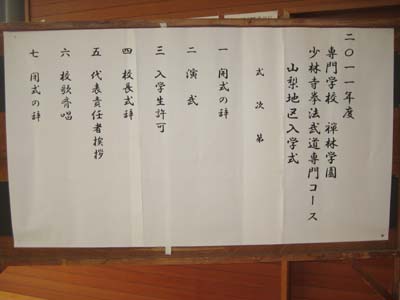 二〇一一年度
専門学校 禅林学園
少林寺拳法武道専門コース
山梨地区入学式
式次第
一 開式の辞
二 演武
三 入学生許可
四 校長式辞
五 代表責任者挨拶
六 校歌斉唱
七 閉式の辞